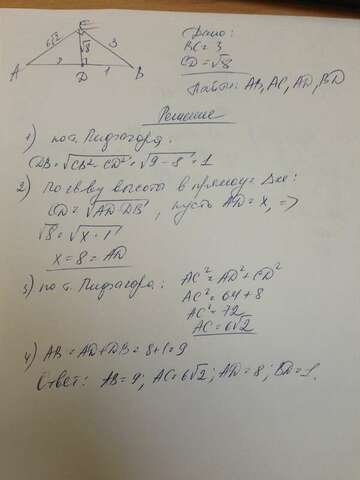 C
6√2
√8
3
A
D
1
B
Дано:
BC = 3
CD = √8
Найти: AB, AC, AD, BD
Решение
1) по т. Пифагора.
DB = √CB² - CD² = √9-8 = 1
2) По св-ву высота в прямоуг Δ-ке:
CD = √AD·DB, пусть AD = x, =>
√8 = √x·1
x = 8 = AD
3) по т. Пифагора: AC² = AD² + CD²
AC² = 64 + 8
AC² = 72
AC = 6√2
4) AB = AD + DB = 8 + 1 = 9
Ответ: AB = 9; AC = 6√2; AD = 8; BD = 1.